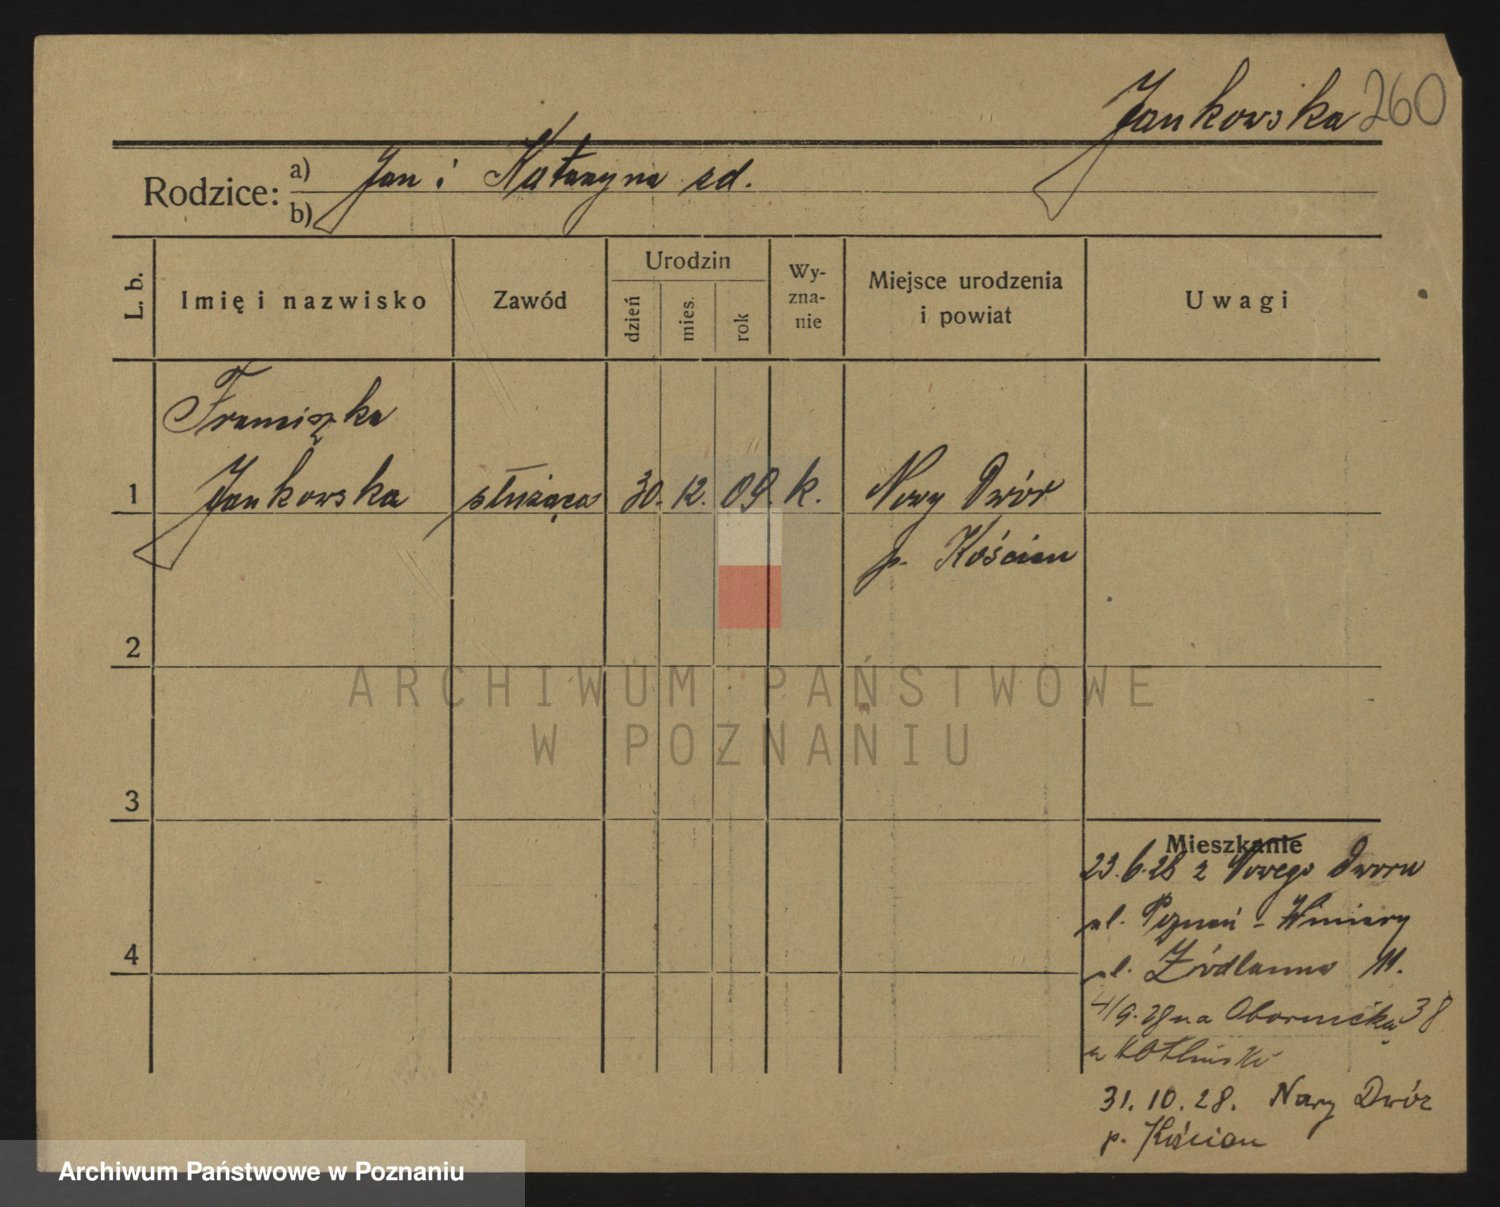 Jankowska 260
Rodzice: a) Jan i Katarzyna zd.
b)
L. b.
Imię i nazwisko
Zawód
Urodzin
dzień
mies.
rok
Wy-
zna-
nie
Miejsce urodzenia
i powiat
Uwagi
Franciszka
1 Jankowska służąca 30. 12. 09. k. Nowy Dwór
p. Kościan
2
3
4
Mieszkanie
23.6.28 z Nowego Dworu
ul. Poznań - Winiary
ul. Źródlanna 11.
4/9.28 na Obornicką 38
31. 10. 28. Nowy Dwór
p. Kościan
ARCHIWUM PAŃSTWOWE
W POZNANIU
Archiwum Państwowe w Poznaniu